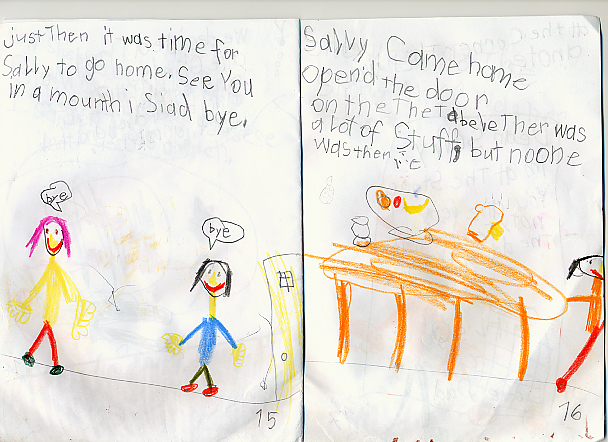 justThen it was time for
Sally to go home. See You
in a mounth i Siad bye.
bye
bye
15
Sally Came home
opend the door
on the The Tabele Ther was
a lot of Stuff, but no one
was ther
16